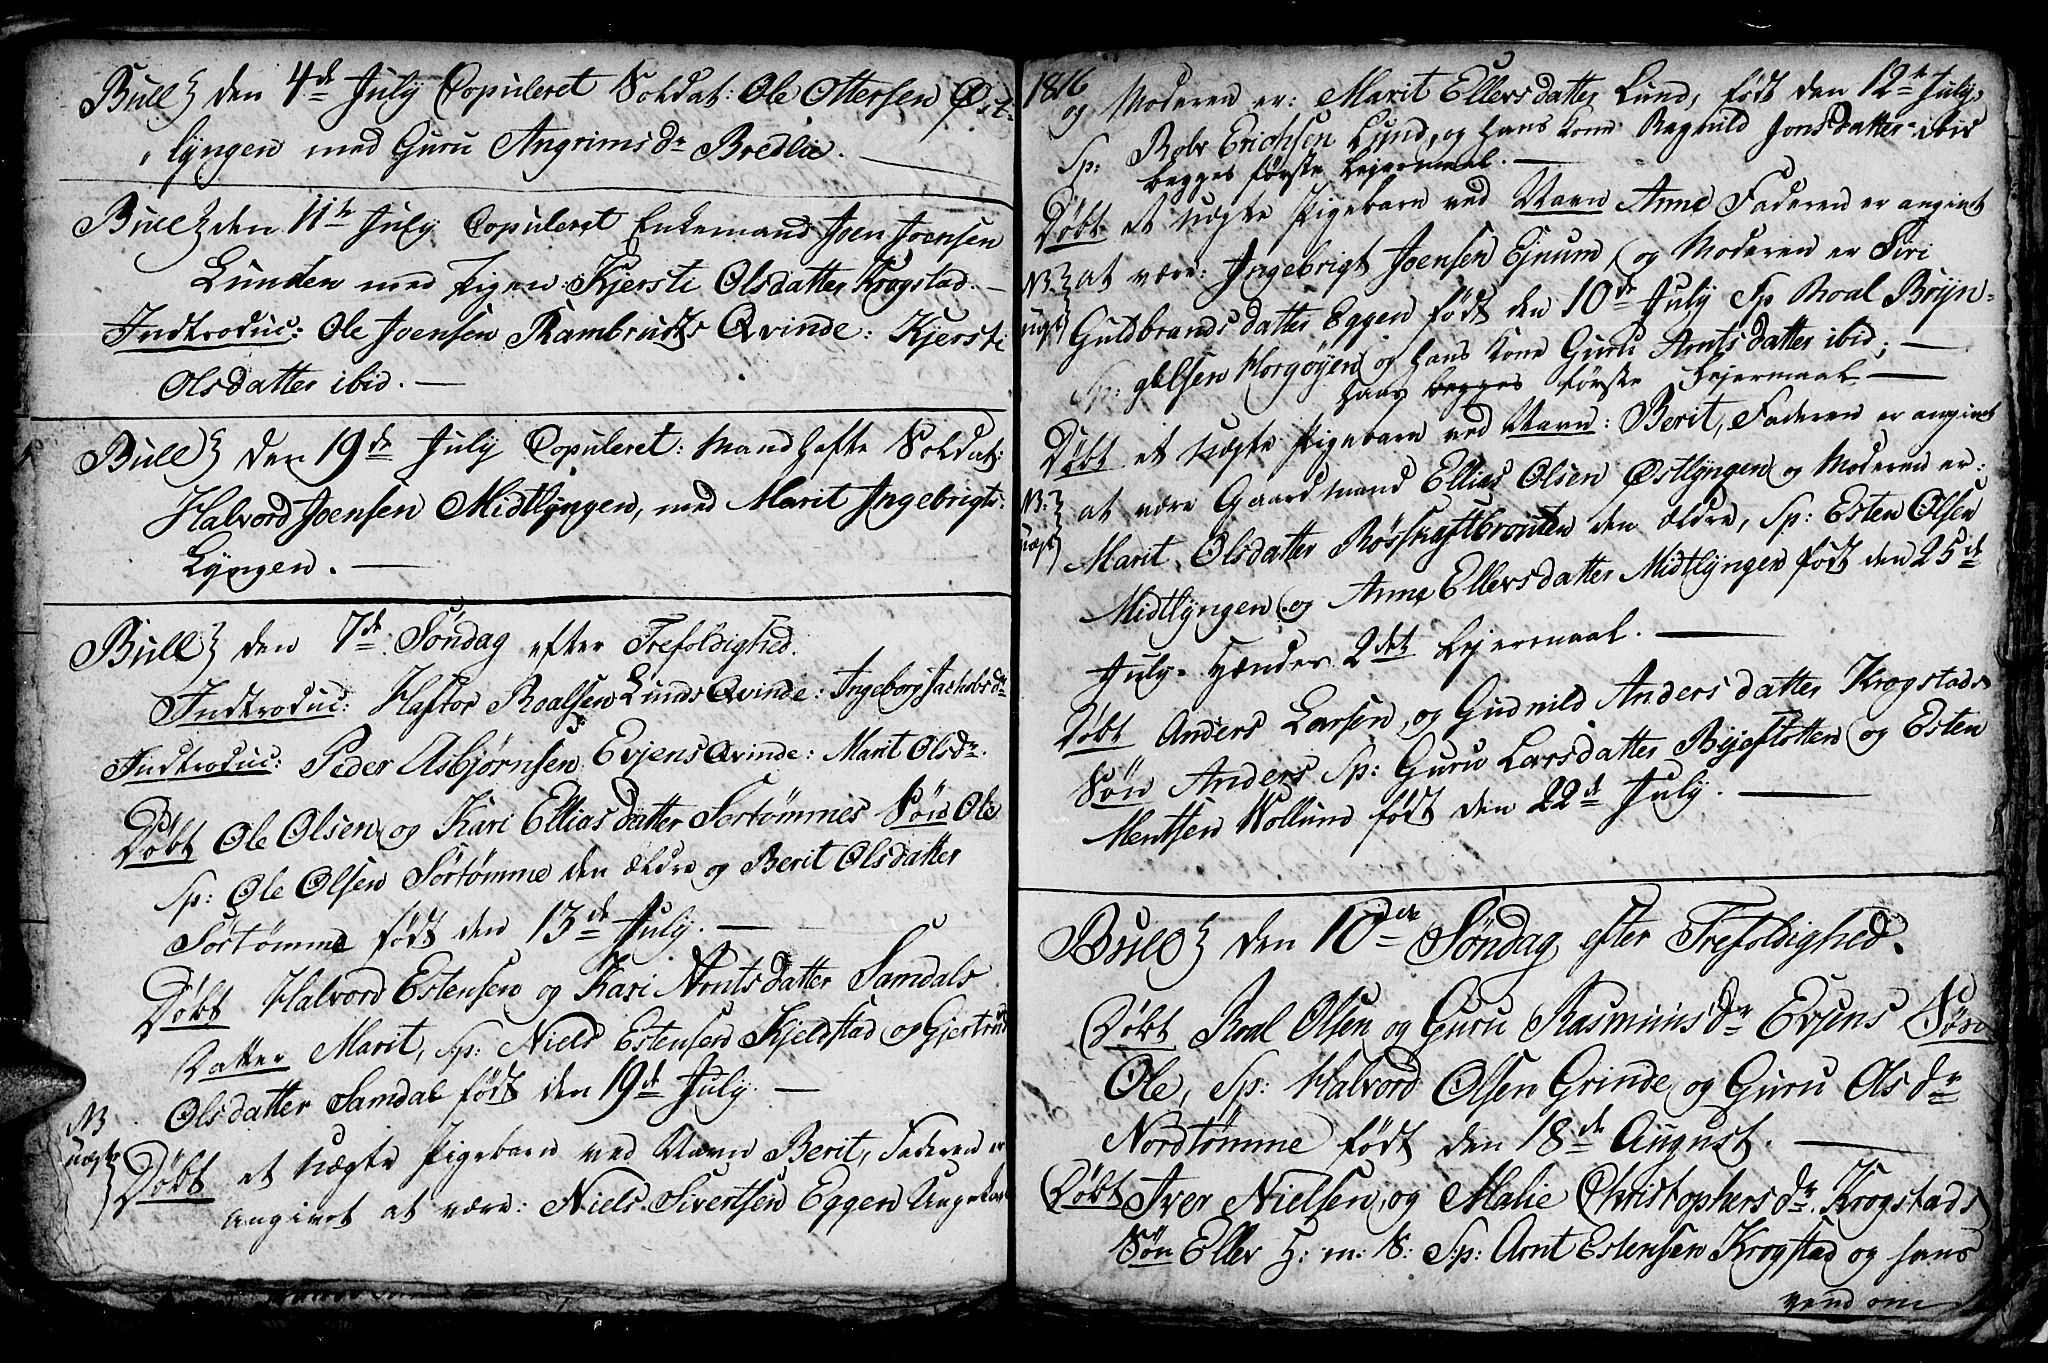 Bull den 4de July Copuleret Soldat: Ole Ottersen Øst-
lyngen med Guru Angrims Dr Bredlie.
Bull den 11te July Copuleret Enkemand Joen Joensen
Lunden med Pigen: Kjersti Olsdatter Krogstad.
Indtroduc: Ole Joensen Kambruds Qvinde: Kjersti
Olsdatter ibid.
Bull den 19de July Copuleret: Mandhafte Soldat:
Halvord Joensen Midtlyngen, med Marit Ingebrigts:
Lyngen.
Bull den 7de Søndag efter Trefoldighed.
Indtroduc: Haftor Roalsen Lunds Qvinde: Ingeborg Jachobs dr
Indtroduc: Peder Asbjørnsen Evjens Qvinde: Marit Olsdr.
Døbt Ole Olsen og Kari Ellias datter Sortømmes Søn Ole
Sp: Ole Olsen Sørtømme den ældre og Berit Olsdatter
Sørtømme født den 13de July.
Døbt Halvord Estensen og Kari Arntsdatter Samdals
Datter Marit, Sp: Niels Estensen Kjeldstad og Gjertrud
Olsdatter Samdal født den 19de July.
NB
uægte
Døbt et uægte Pigebarn ved Navn Berit, Faderen er
angivet at være: Niels Sivertsen Eggen Ungekarl
1816
og Moderen er: Marit Ellersdatter Lund, født den 12te July,
Sp: Rolv Erichsen Lund, og hans Kone Ragnild Jonsdatter ibid
begges første Lejermaal.
Døbt et uægte Pigebarn ved Navn Anne Faderen er angivet
NB at være: Ingebrigt Joensen Ejnum, og Moderen er Siri
uægt Guldbrandsdatter Eggen født den 10de July Sp Roal Bryn-
Sp: gelsen Horgøyen og hans Kone Guru Arntsdatter ibid;
hans begges første Lejermaal
Døbt et uægte Pigebarn ved Navn: Berit, Faderen er angivet
NB: at være Gaardmand Ellias Olsen Østlyngen og Moderen er:
uægt Marit Olsdatter Røsskaftbrouten den ældre, Sp: Esten Olsen
Midtlyngen og Anne Ellersdatter Midtlyngen født den 25de
July. Hendes 2det Lejermaal.
Døbt Anders Larsen, og Gudnild Anders datter Krogstads
Søn Anders Sp: Guru Larsdatter Byeslotten og Esten
Mentsen Vollund født den 22de July.
Bull den 10de Søndag efter Trefoldighed.
Døbt Roal Olsen og Guru Rasmus Dr Evjens Søn
Ole, Sp: Halvord Olsen Grinde og Guru Olsdr
Nordtømme født den 18de August.
Døbt Iver Nielsen og Malie Christophersdr Krogstads
Søn Eller H: m: S: Sp: Arnt Estensen Krogstad og hans
vend om